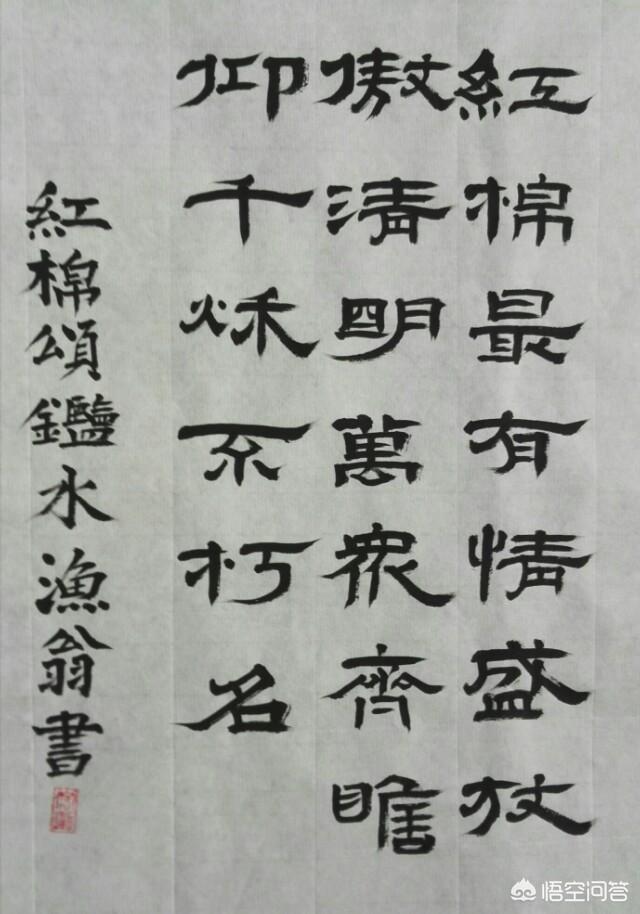 紅棉最有情盛放
傲清明萬眾齊瞻
仰千秌不朽名
紅棉頌鑑水漁翁書
悟空问答